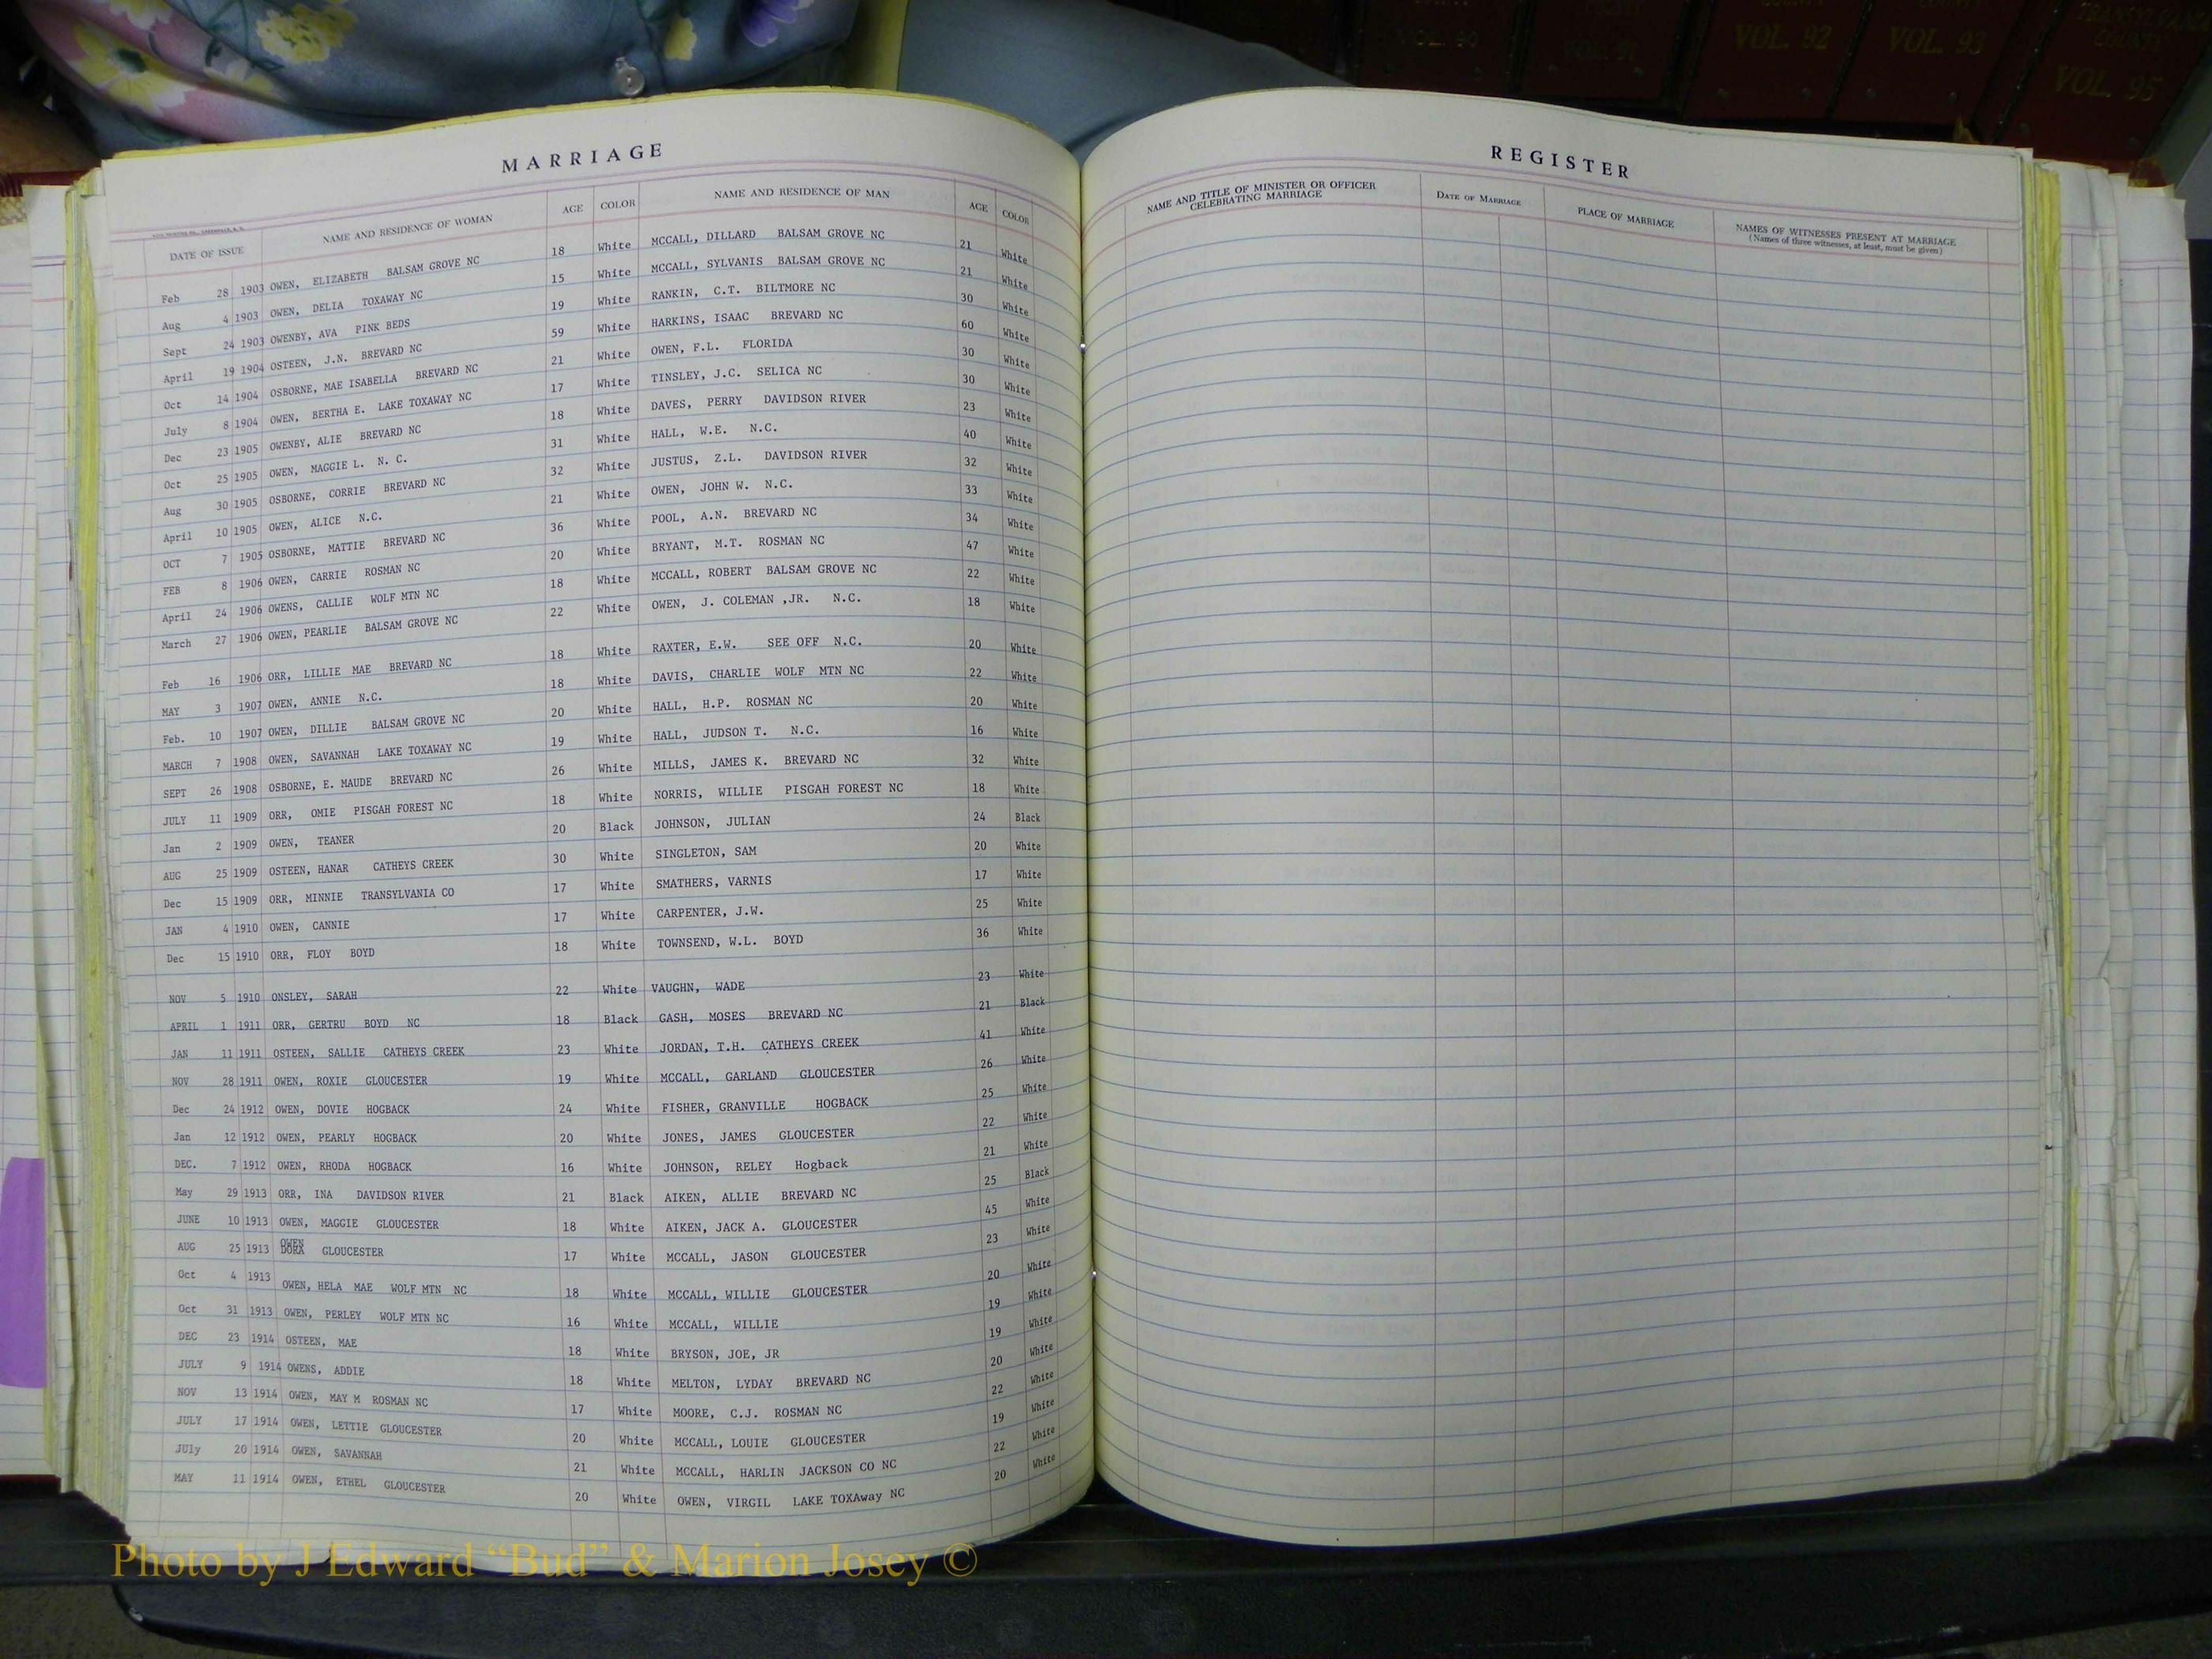 VOL. 90
VOL. 91
COUNTY
VOL. 92
COUNTY
VOL. 93
TRANSYLVANIA
COUNTY
VOL. 95
MARRIAGE
DATE OF ISSUE NAME AND RESIDENCE OF WOMAN AGE COLOR NAME AND RESIDENCE OF MAN AGE COLOR
Feb 28 1903 OWEN, ELIZABETH BALSAM GROVE NC 18 White MCCALL, DILLARD BALSAM GROVE NC 21 White
Aug 4 1903 OWEN, DELIA TOXAWAY NC 15 White MCCALL, SYLVANIS BALSAM GROVE NC 21 White
Sept 24 1903 OWENBY, AVA PINK BEDS 19 White RANKIN, C.T. BILTMORE NC 30 White
April 19 1904 OSTEEN, J.N. BREVARD NC 59 White HARKINS, ISAAC BREVARD NC 60 White
Oct 14 1904 OSBORNE, MAE ISABELLA BREVARD NC 21 White OWEN, F.L. FLORIDA 30 White
July 8 1904 OWEN, BERTHA E. LAKE TOXAWAY NC 17 White TINSLEY, J.C. SELICA NC 30 White
Dec 23 1905 OWENBY, ALIE BREVARD NC 18 White DAVES, PERRY DAVIDSON RIVER 23 White
Oct 25 1905 OWEN, MAGGIE L. N. C. 31 White HALL, W.E. N.C. 40 White
Aug 30 1905 OSBORNE, CORRIE BREVARD NC 32 White JUSTUS, Z.L. DAVIDSON RIVER 32 White
April 10 1905 OWEN, ALICE N.C. 21 White OWEN, JOHN W. N.C. 33 White
OCT 7 1905 OSBORNE, MATTIE BREVARD NC 36 White POOL, A.N. BREVARD NC 34 White
FEB 8 1906 OWEN, CARRIE ROSMAN NC 20 White BRYANT, M.T. ROSMAN NC 47 White
April 24 1906 OWENS, CALLIE WOLF MTN NC 18 White MCCALL, ROBERT BALSAM GROVE NC 22 White
March 27 1906 OWEN, PEARLIE BALSAM GROVE NC 22 White OWEN, J. COLEMAN ,JR. N.C. 18 White
Feb 16 1906 ORR, LILLIE MAE BREVARD NC 18 White RAXTER, E.W. SEE OFF N.C. 20 White
MAY 3 1907 OWEN, ANNIE N.C. 18 White DAVIS, CHARLIE WOLF MTN NC 22 White
Feb. 10 1907 OWEN, DILLIE BALSAM GROVE NC 20 White HALL, H.P. ROSMAN NC 20 White
MARCH 7 1908 OWEN, SAVANNAH LAKE TOXAWAY NC 19 White HALL, JUDSON T. N.C. 16 White
SEPT 26 1908 OSBORNE, E. MAUDE BREVARD NC 26 White MILLS, JAMES K. BREVARD NC 32 White
JULY 11 1909 ORR, OMIE PISGAH FOREST NC 18 White NORRIS, WILLIE PISGAH FOREST NC 18 White
Jan 2 1909 OWEN, TEANER 20 Black JOHNSON, JULIAN 24 Black
AUG 25 1909 OSTEEN, HANAR CATHEYS CREEK 30 White SINGLETON, SAM 20 White
Dec 15 1909 ORR, MINNIE TRANSYLVANIA CO 17 White SMATHERS, VARNIS 17 White
JAN 4 1910 OWEN, CANNIE 17 White CARPENTER, J.W. 25 White
Dec 15 1910 ORR, FLOY BOYD 18 White TOWNSEND, W.L. BOYD 36 White
NOV 5 1910 ONSLEY, SARAH 22 White VAUGHN, WADE 23 White
APRIL 1 1911 ORR, GERTRU BOYD NC 18 Black GASH, MOSES BREVARD NC 21 Black
JAN 11 1911 OSTEEN, SALLIE CATHEYS CREEK 23 White JORDAN, T.H. CATHEYS CREEK 41 White
NOV 28 1911 OWEN, ROXIE GLOUCESTER 19 White MCCALL, GARLAND GLOUCESTER 26 White
Dec 24 1912 OWEN, DOVIE HOGBACK 24 White FISHER, GRANVILLE HOGBACK 25 White
Jan 12 1912 OWEN, PEARLY HOGBACK 20 White JONES, JAMES GLOUCESTER 22 White
DEC. 7 1912 OWEN, RHODA HOGBACK 16 White JOHNSON, RELEY Hogback 21 White
May 29 1913 ORR, INA DAVIDSON RIVER 21 Black AIKEN, ALLIE BREVARD NC 25 Black
JUNE 10 1913 OWEN, MAGGIE GLOUCESTER 18 White AIKEN, JACK A. GLOUCESTER 45 White
AUG 25 1913 OWEN DORA GLOUCESTER 17 White MCCALL, JASON GLOUCESTER 23 White
Oct 4 1913 OWEN, HELA MAE WOLF MTN NC 18 White MCCALL, WILLIE GLOUCESTER 20 White
Oct 31 1913 OWEN, PERLEY WOLF MTN NC 16 White MCCALL, WILLIE 19 White
DEC 23 1914 OSTEEN, MAE 18 White BRYSON, JOE, JR 19 White
JULY 9 1914 OWENS, ADDIE 18 White MELTON, LYDAY BREVARD NC 20 White
NOV 13 1914 OWEN, MAY M ROSMAN NC 17 White MOORE, C.J. ROSMAN NC 22 White
JULY 17 1914 OWEN, LETTIE GLOUCESTER 20 White MCCALL, LOUIE GLOUCESTER 19 White
JUly 20 1914 OWEN, SAVANNAH 21 White MCCALL, HARLIN JACKSON CO NC 22 White
MAY 11 1914 OWEN, ETHEL GLOUCESTER 20 White OWEN, VIRGIL LAKE TOXAway NC 20 White
REGISTER
NAME AND TITLE OF MINISTER OR OFFICER
CELEBRATING MARRIAGE
DATE OF MARRIAGE
PLACE OF MARRIAGE
NAMES OF WITNESSES PRESENT AT MARRIAGE
(Names of three witnesses, at least, must be given)
Photo by J Edward “Bud” & Marion Josey ©